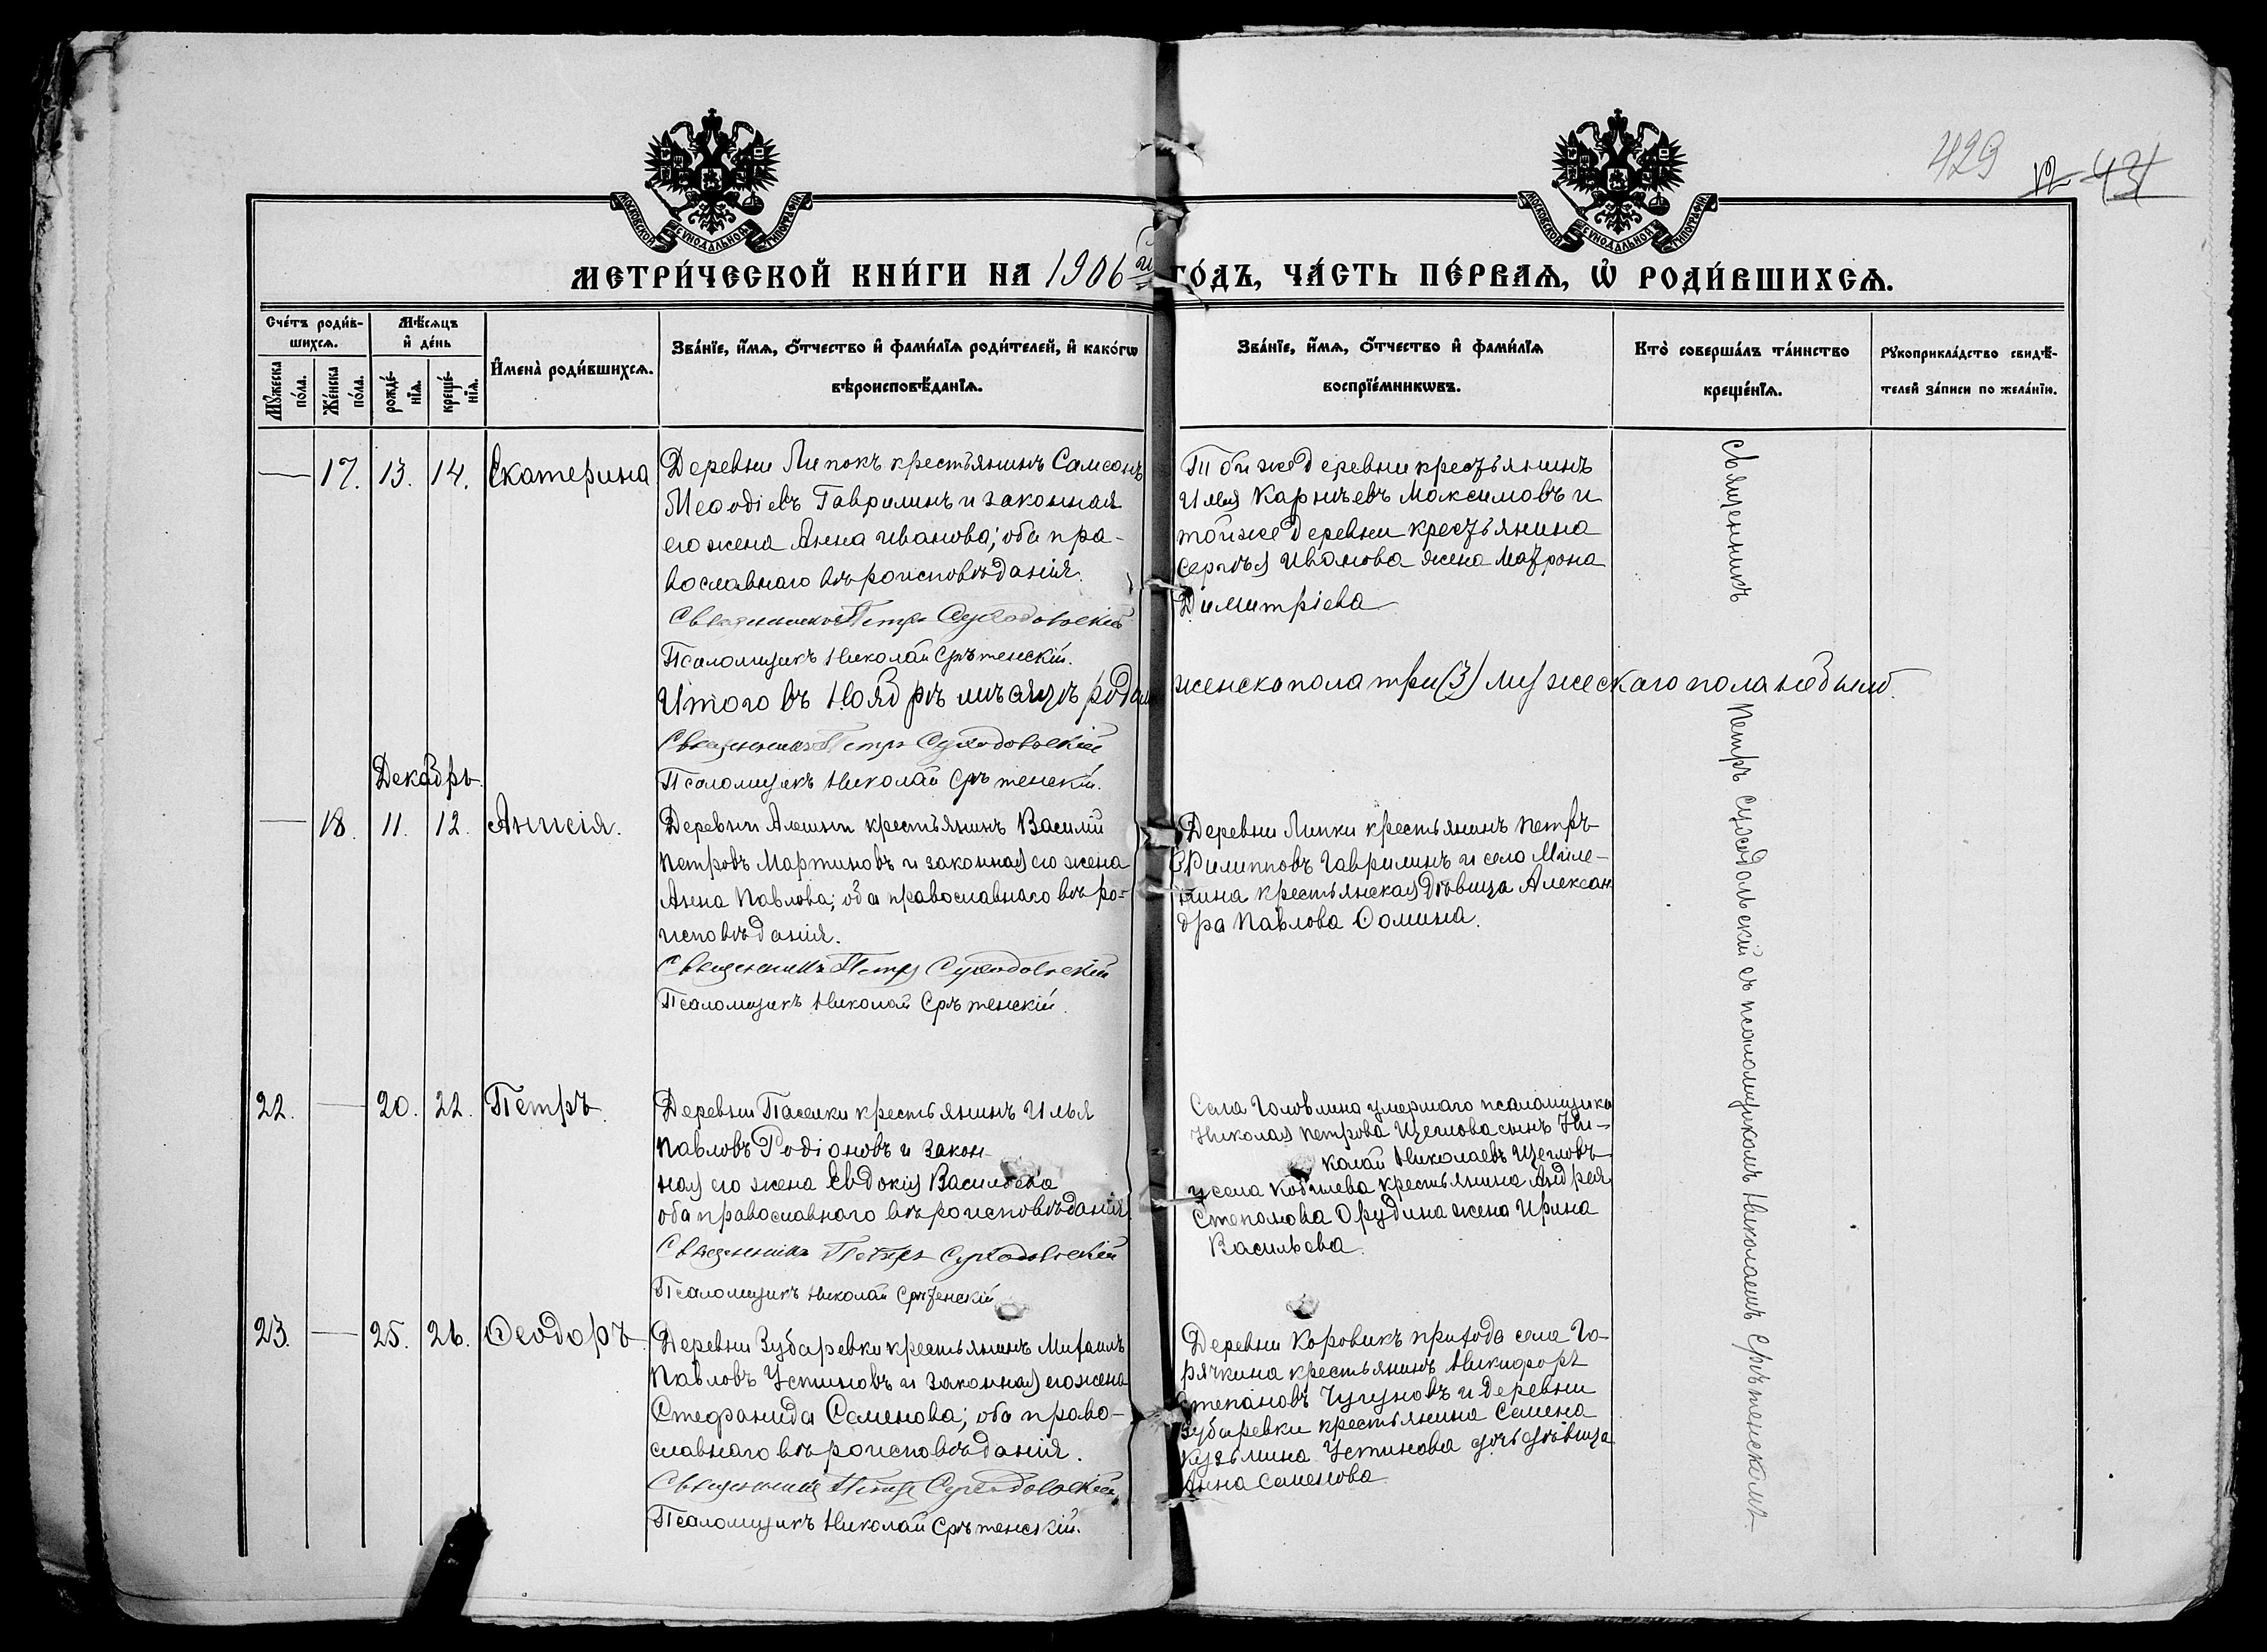 429
12 43
МОСКОВСКОЙ СѴНОДАЛЬНОЙ ТИПОГРАФІИ
МОСКОВСКОЙ СѴНОДАЛЬНОЙ ТИПОГРАФІИ
МЕТРИ́ЧЕСКОЙ КНИ́ГИ НА 1906й ГО́ДЪ, ЧА́СТЬ ПЕ́РВАѦ, Ѡ҆ РОДИ́ВШИХСѦ.
Сче́тъ роди́в-
шихсѧ.
Мѣ́сѧцъ
и҆ де́нь
Мꙋ́жеска
по́ла.
Же́нска
по́ла.
рожде́-
нїѧ.
креще́-
нїѧ.
И҆мена̀ роди́вшихсѧ.
Зва́нїе, и҆́мѧ, ѻ҆́тчество и҆ фами́лїѧ роди́телей, и҆ како́гѡ
вѣроисповѣ́данїѧ.
Зва́нїе, и҆́мѧ, ѻ҆́тчество и҆ фами́лїѧ
воспрїе́мникѡвъ.
Кто̀ соверша́лъ та́инство
креще́нїѧ.
Рꙋкоприкла́дство свидѣ́-
телей за́писи по жела́нїю.
— 17. 13. 14. Екатерина
Деревни Липокъ крестьянинъ Самсонъ
Меѳодіевъ Гаврилинъ и законная
его жена Анна Иванова; оба пра-
вославнаго вѣроисповѣданія.
Священникъ Петръ Суходольскій
Псаломщикъ Николай Срѣтенскій.
Той же деревни крестьянинъ
Илья Карнѣевъ Максимовъ и
той же деревни крестьянина
Сергѣя Иванова жена Матрона
Димитріева
Итого въ Ноябрѣ мѣсяцѣ родил женско пола три (3) мужескаго пола не было.
Священникъ Петръ Суходольскій
Псаломщикъ Николай Срѣтенскій.
Декабрь.
— 18. 11. 12. Анисія.
Деревни Алешни крестьянинъ Василій
Петровъ Мартиновъ и законная его жена
Анна Павлова; оба православнаго вѣро-
исповѣданія.
Священникъ Петръ Суходольскій
Псаломщикъ Николай Срѣтенскій.
Деревни Липки крестьянинъ Петръ
Филипповъ Гаврилинъ и села Миле-
нина крестьянская дѣвица Алексан
дра Павлова Ѳомина.
22. — 20. 22. Петръ
Деревни Паселки крестьянинъ Илья
Павловъ Родіоновъ и закон-
ная его жена Евдокія Васильева
оба православнаго вѣроисповѣданія.
Священникъ Петръ Суходольскій
Псаломщикъ Николай Срѣтенскій
Села Головлина умершаго псаломщика
Николая Петрова Щеглова сынъ Ни-
колай Николаевъ Щегловъ
и села Кобылева крестьянина Андрея
Степанова Орудина жена Ирина
Васильева.
23. — 25. 26. Ѳеодоръ
Деревни Зубаревки крестьянинъ Михаилъ
Павловъ Устиновъ и законная его жена
Стефанида Семенова; оба право-
славнаго вѣроисповѣданія.
Священникъ Петръ Суходольскій
Псаломщикъ Николай Срѣтенскій.
Деревни Коровикъ прихода села Го-
рячкина крестьянинъ Никифоръ
Степановъ Чугуновъ и деревни
Зубаревки крестьянина Семена
Кузьмина Устинова дочь дѣвица
Анна Семенова.
Священникъ Петръ Суходольскій съ псаломщикомъ Николаемъ Срѣтенскимъ.